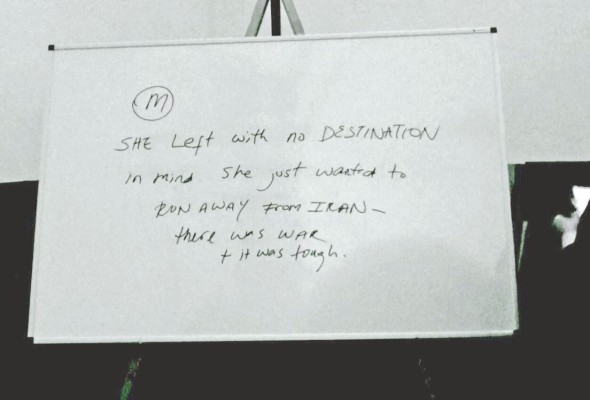 M
SHE Left with no DESTINATION
in mind She just wanted to
RUN AWAY From IRAN -
there was WAR
+ it was tough.